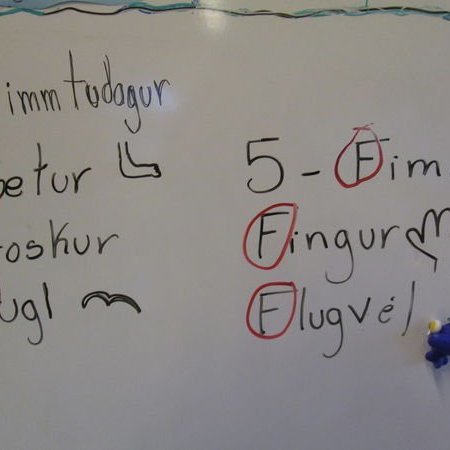 immtudagur
etur
oskur
ugl
5 - Fim
Fingur
Flugvél